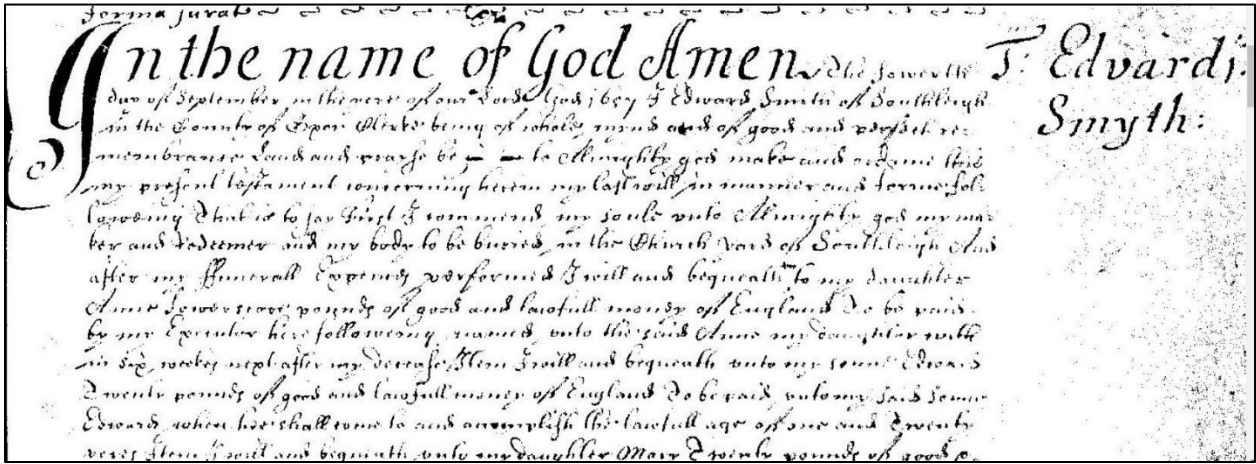 forma jurat
In the name of God Amen the fowerth
day of September in the yere of our Lord God 1607 I Edward Smith of Southleigh
in the County of Clerke being of whole mynd and of good and perfect re
membrance Laud and prayse be to Allmighty god make and ordaine this
my present testament concerning herein my last will in manner and forme fol
loweing That is to say First I commend my soule unto Allmighty god my ma
ker and redeemer and my body to be buried in the Church yard of Southleigh And
after my Funerall Expences performed I will and bequeath to my daughter
Anne fowerscore pounds of good and lawfull money of England To be paid
by my Executor here followeing named unto the said Anne my daughter with
in six weekes next after my decease Item I will and bequeath unto my sonne Edward
Twenty pounds of good and lawfull money of England To be paid unto my said sonne
Edward when hee shall come to and accomplish the lawfull age of one and Twenty
yeres Item I will and bequeath unto my daughter Mary Twenty pounds of good
T. Edvardi
Smyth: